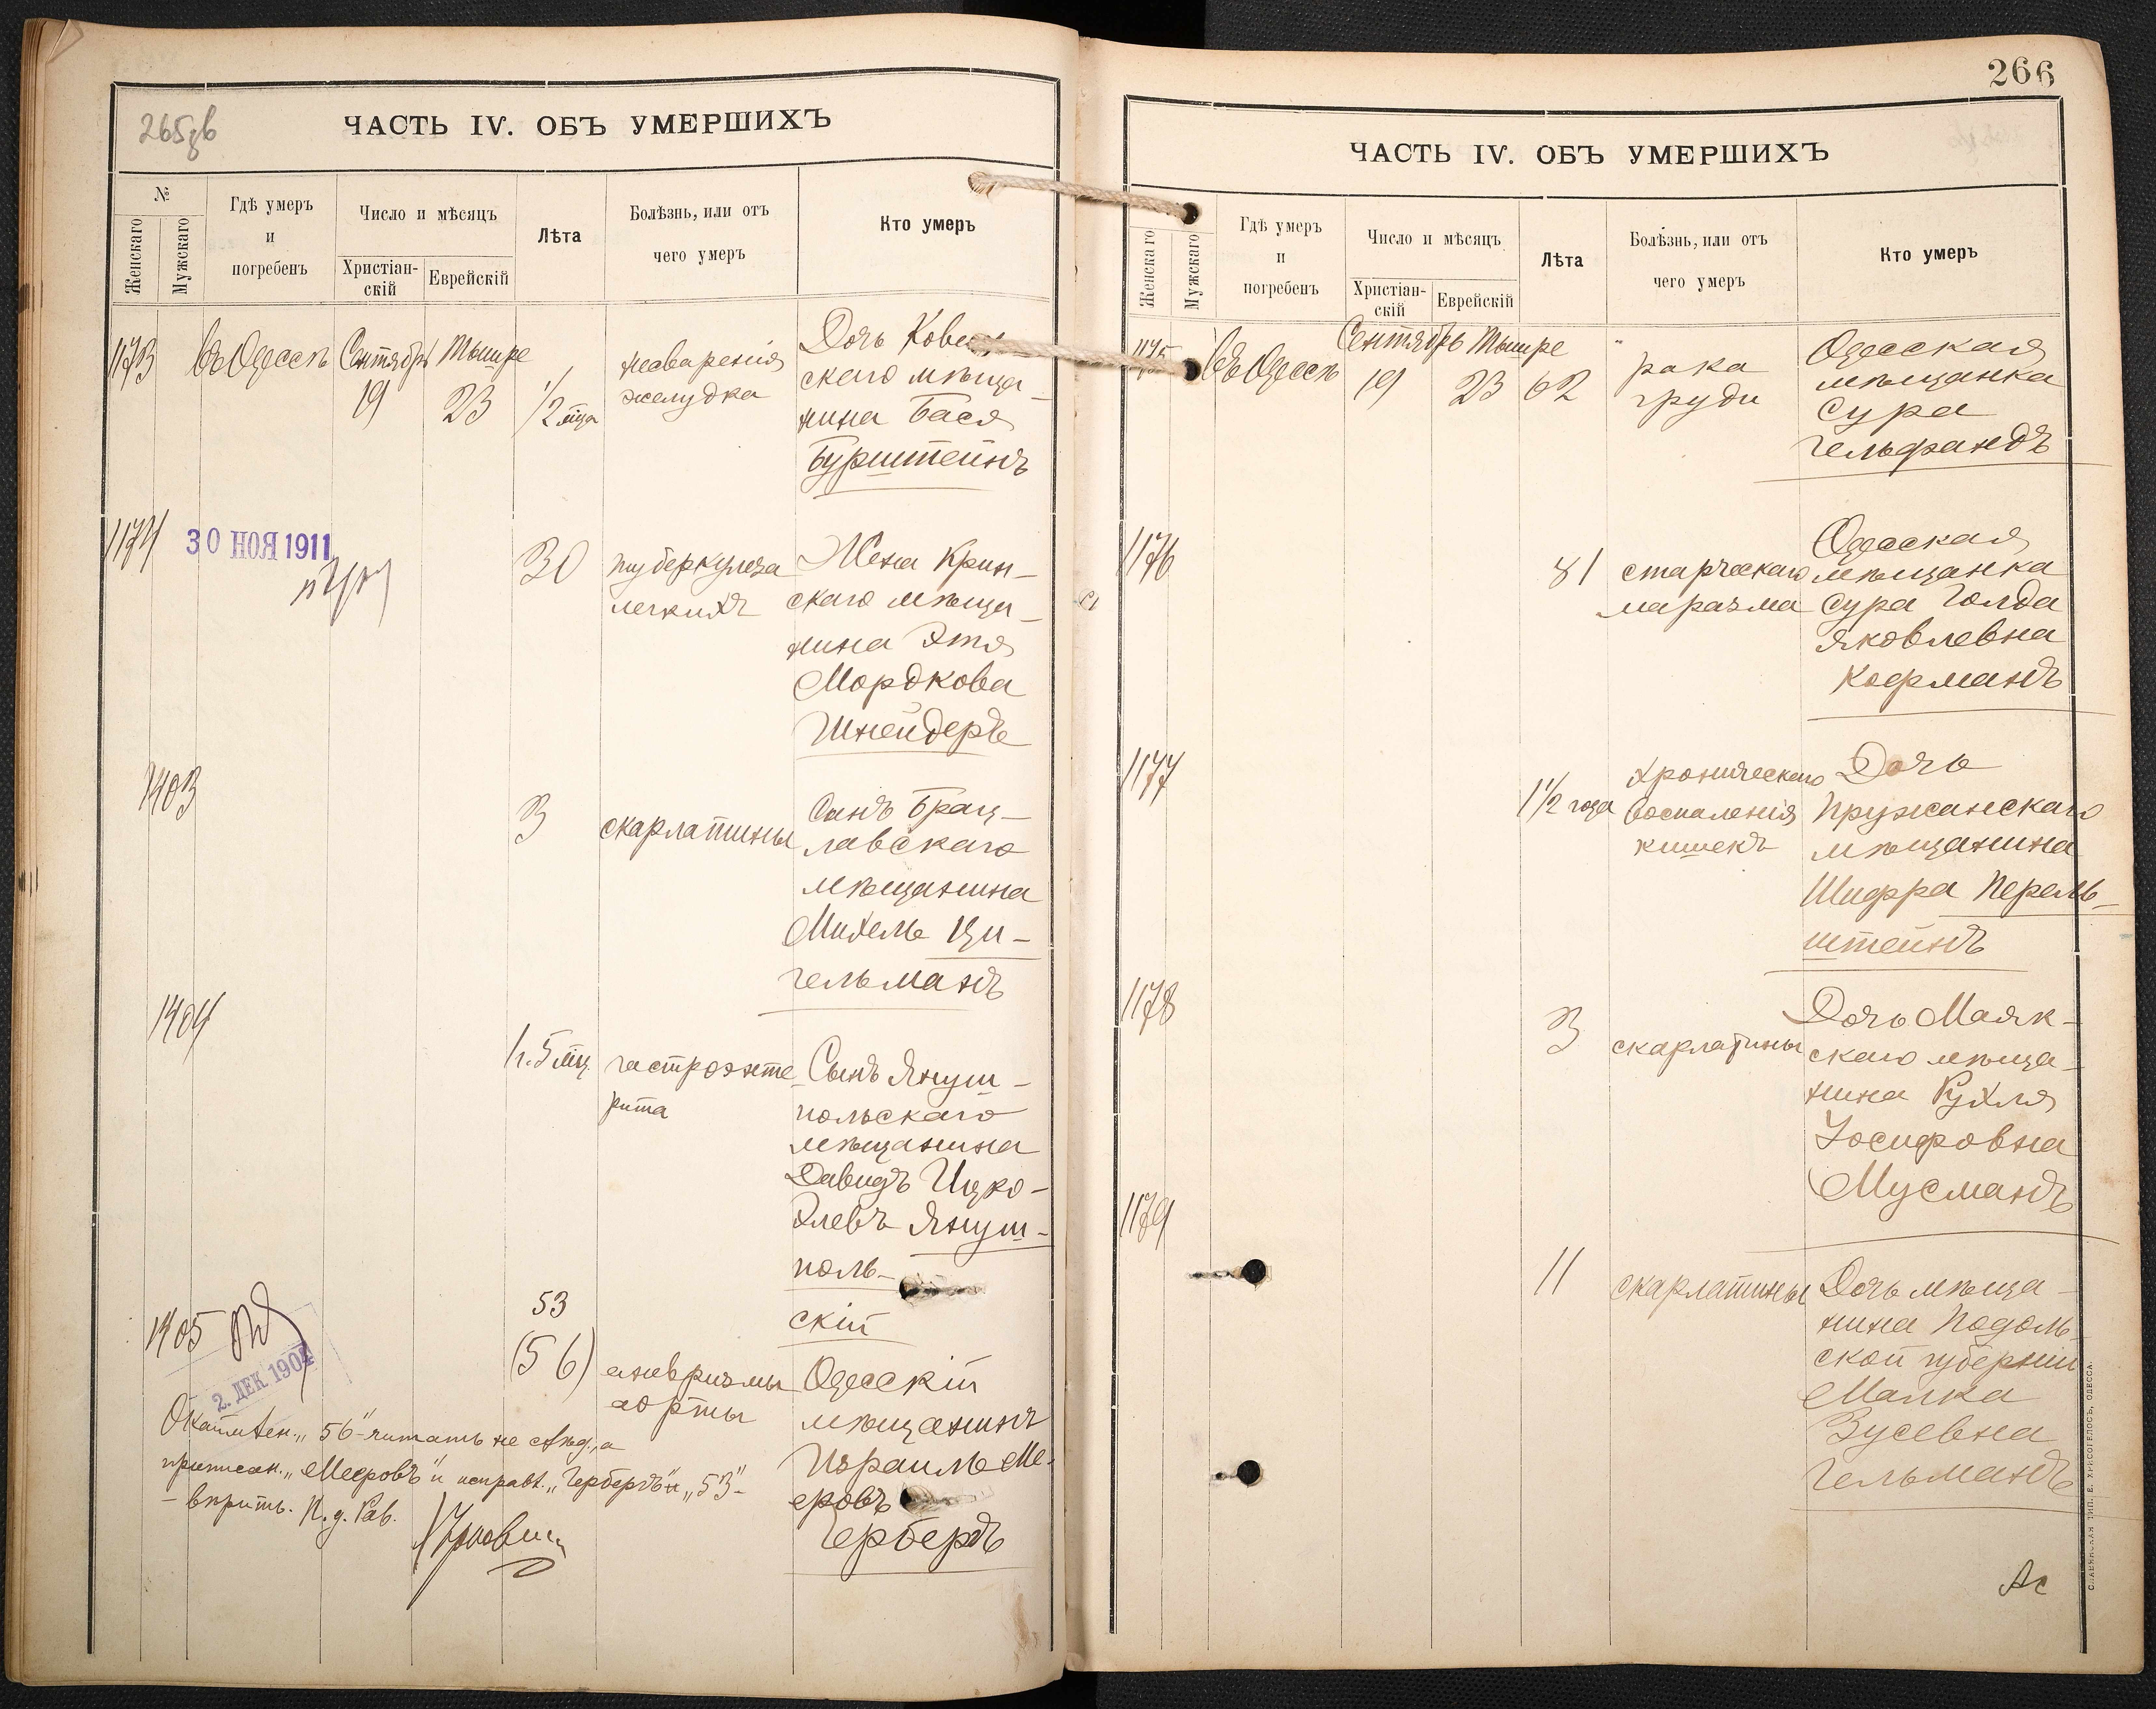 265 об
ЧАСТЬ IV. ОБЪ УМЕРШИХЪ
№
Женскаго
Мужскаго
Гдѣ умеръ
и
погребенъ
Число и мѣсяцъ
Христіан-
скій
Еврейскій
Лѣта
Болѣзнь, или отъ
чего умеръ
Кто умеръ
1173
въ Одессѣ
Сентябрь
19
Тишре
23
1/2 мца
несваренія
желудка
Дочь Ковен-
скаго мѣща-
нина Бася
Бурштейнъ
1174
30 НОЯ 1911
30
туберкулеза
легкихъ
Жена Крин-
скаго мѣща-
нина Этя
Мордкова
Шнейдеръ
1403
3
скарлатины
Сынъ Брац-
лавскаго
мѣщанина
Михель Ци-
гельманъ
1404
1 г. 5 мц.
гастроэнте-
рита
Сынъ Януш-
польскаго
мѣщанина
Давидъ Ицко-
Хлевъ Януш-
поль-
скій
1405
2. ДЕК 1904
53
(56)
аневризмы
аорты
Одесскій
мѣщанинъ
Израиль Ме-
еровъ
Герберъ
"56"-читать не слѣд., а
приписан. "Мееровъ" и исправл. "Герберъ" и "53"-
-вѣрить. И. д. Рав.
266
ЧАСТЬ IV. ОБЪ УМЕРШИХЪ
Женскаго
Мужскаго
Гдѣ умеръ
и
погребенъ
Число и мѣсяцъ
Христіан-
скій
Еврейскій
Лѣта
Болѣзнь, или отъ
чего умеръ
Кто умеръ
1175
въ Одессѣ
Сентябрь
19
Тишре
23
62
рака
груди
Одесская
мѣщанка
Сура
Гельфандъ
1176
81
старческаго
маразма
Одесская
мѣщанка
Сура Голда
Яковлевна
Кофманъ
1177
1 1/2 года
хроническаго
воспаленія
кишекъ
Дочь
Пружанскаго
мѣщанина
Шифра Перель-
штейнъ
1178
3
скарлатины
Дочь Маяк-
скаго мѣща-
нина Рухля
Іосифовна
Мусманъ
1179
11
скарлатины
Дочь мѣща-
нина Подоль-
ской губерніи
Малка
Зусевна
Гельманъ
СЛАВЯНСКАЯ ТИП. Е. ХРИСОГЕЛОСЪ, ОДЕССА.